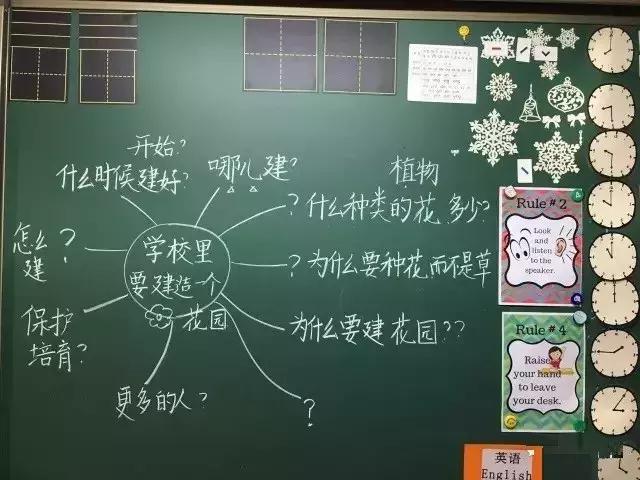 开始?
什么时候建好?
哪儿建?
植物
? 什种类的花 多少?
怎么
建 ?
学校里
要建造一个
花园
? 为什么要种花而不是草
保护
培育?
为什么要建 花园??
更多的人?
?
Rule # 2
Look
and
listen
to the
speaker.
Rule # 4
Raise
your hand
to leave
your desk.
英语
English